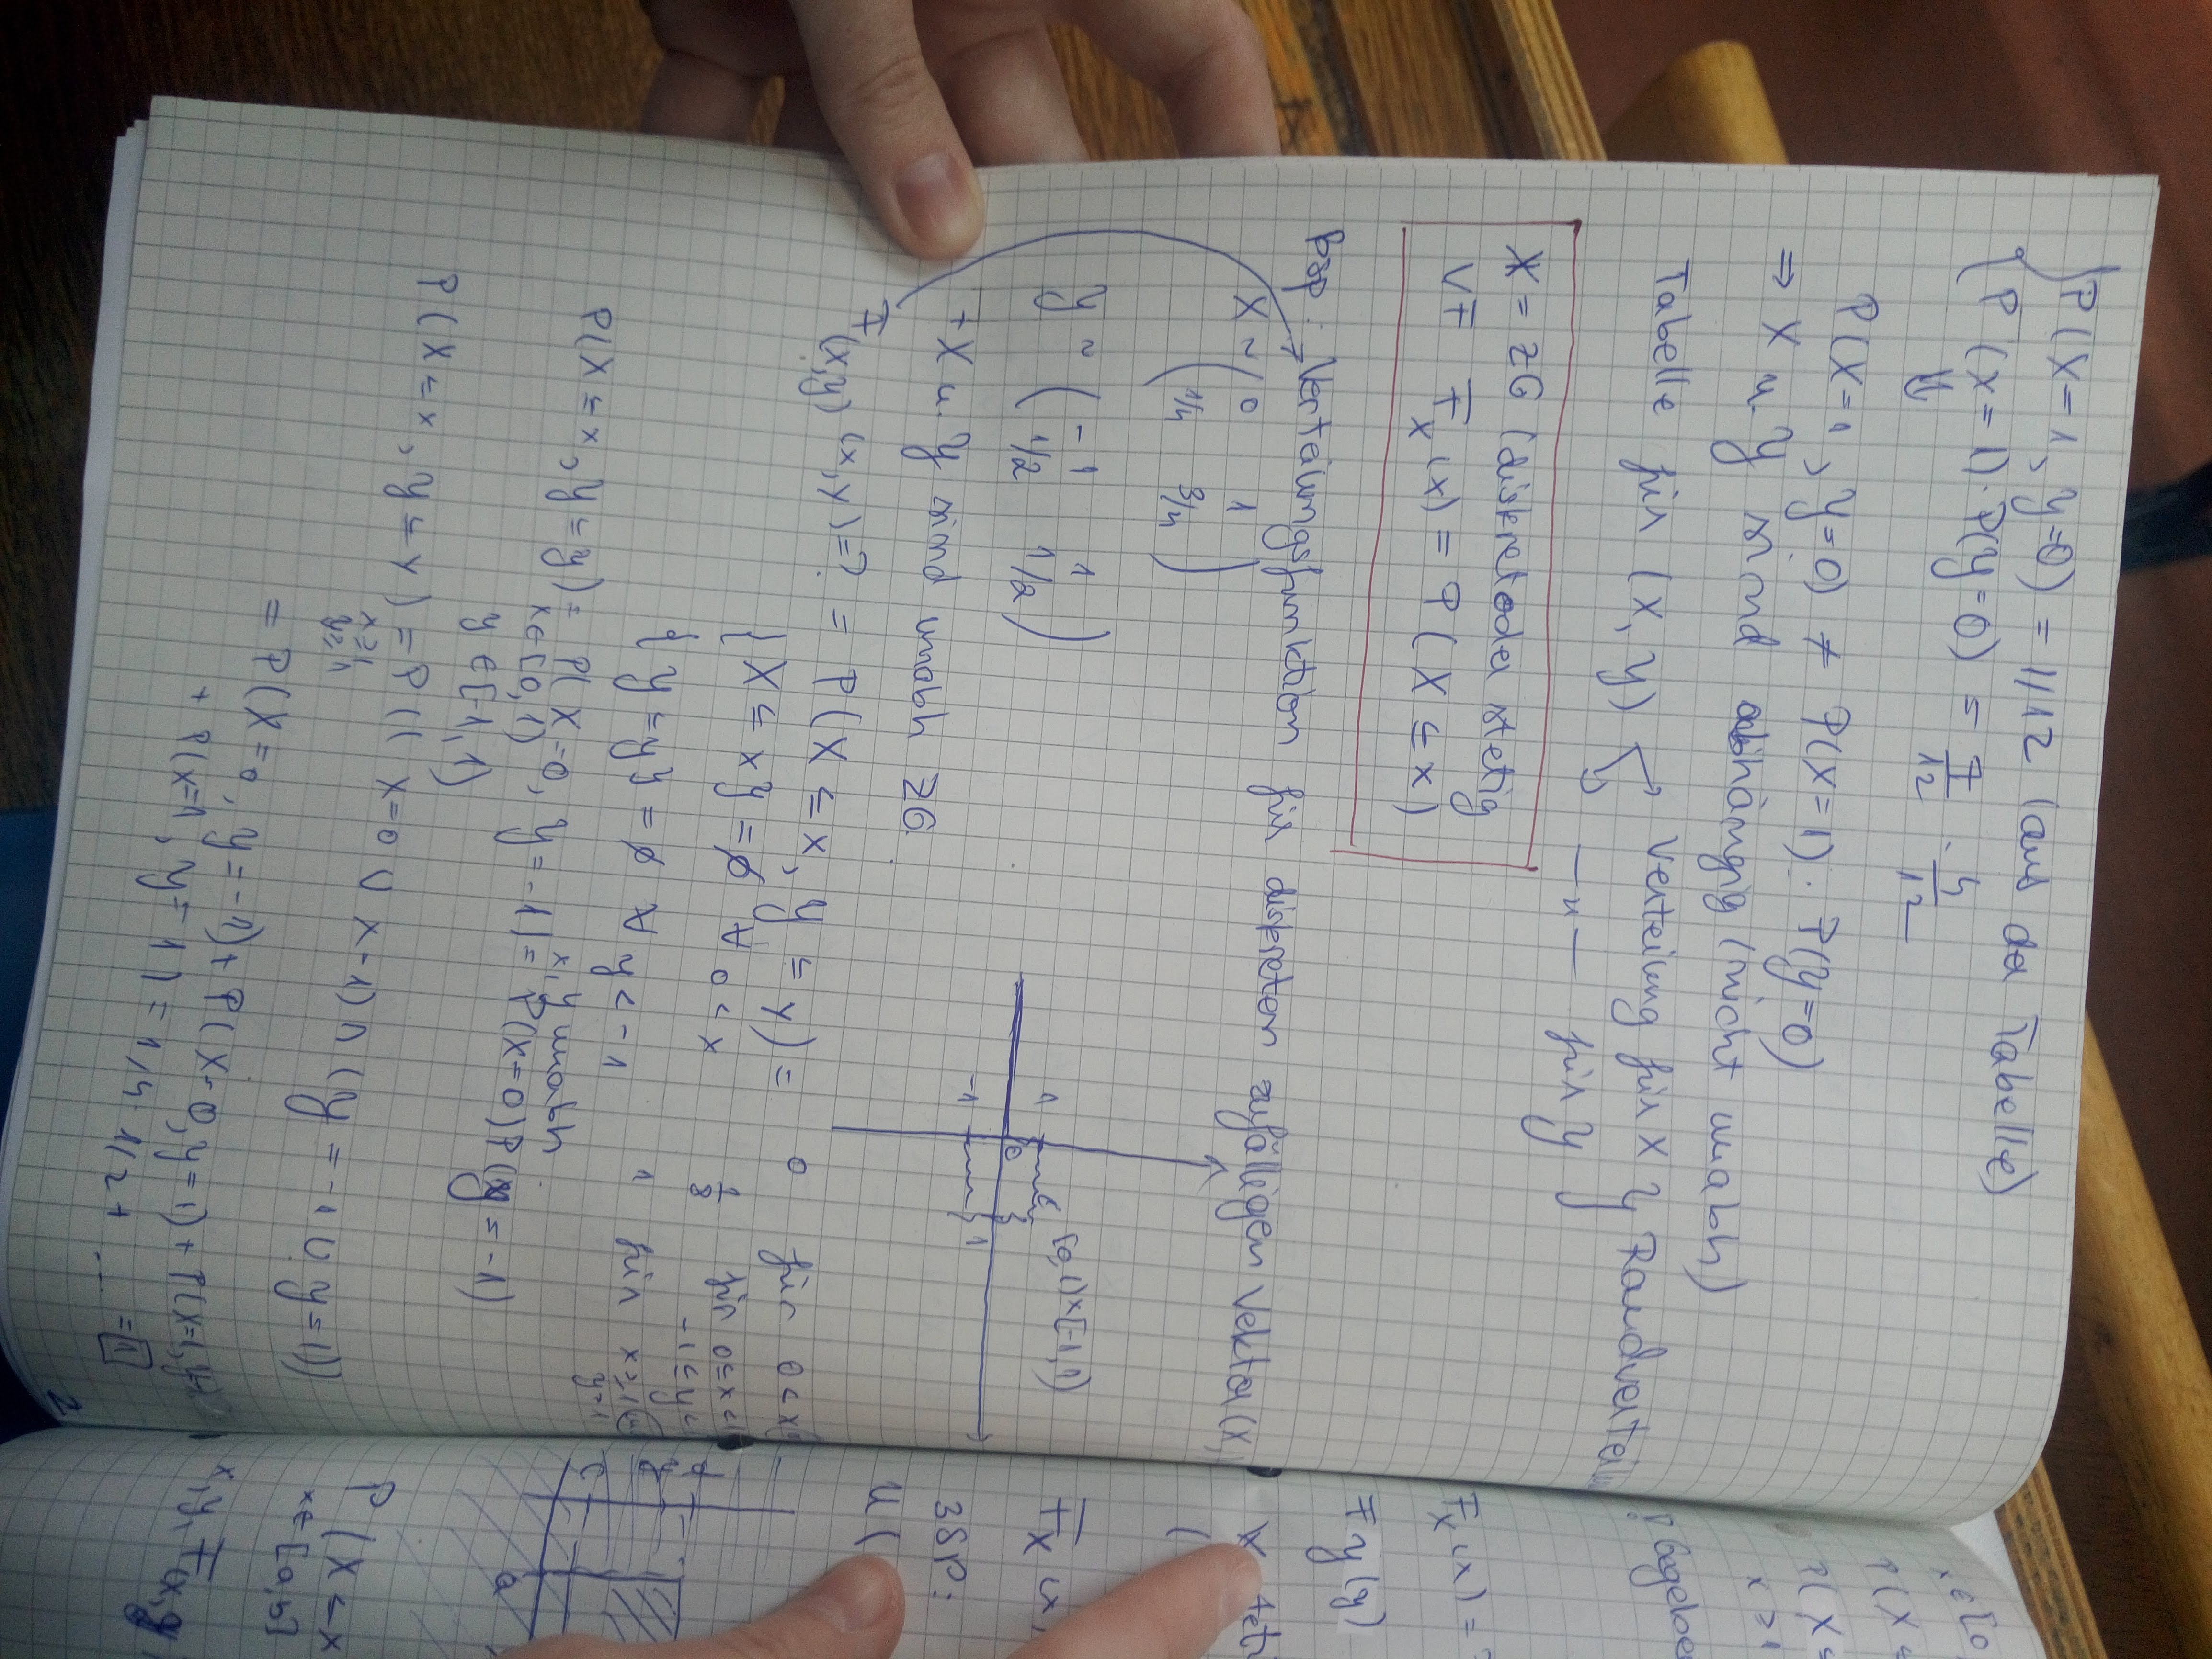 P(X=1, Y=0) = 1/12 (aus der Tabelle)
P(X=1)·P(Y=0) = 7/12 · 4/12
⇓
P(X=1, Y=0) ≠ P(X=1)·P(Y=0)
⇒ X u. Y sind abhängig (nicht unabh)
Tabelle für (X, Y) Verteilung für X } Randverteilu
—„— für Y
X = ZG (diskret oder stetig
VF F_X(x) = P(X ≤ x)
Bsp: Verteilungsfunktion für diskreten zufälligen Vektor (X,
X ~ ( 0 1
1/4 3/4 )
[0,1)×[-1,1)
Y ~ ( -1 1
1/2 1/2 )
1
0
-1 1
+ X u. Y sind unabh ZG.
F_(X,Y)(x,y)=? = P(X ≤ x, Y ≤ y) = 0 für 0 < x
{X ≤ x} = ∅ ∀ 0 < x 1/8 für 0 ≤ x < 1
-1 ≤ y <
{Y ≤ y} = ∅ ∀ y < -1 1 für x ≥ 1
y = 1
P(X ≤ x, Y ≤ y) = P(X=0, Y=-1) = P(X=0)P(Y=-1)
x, y unabh
x ∈ [0, 1)
y ∈ [-1, 1)
P(X ≤ x, Y ≤ y) = P((X=0 ∪ X=1) ∩ (Y=-1 ∪ Y=1))
x ≥ 1
y ≥ 1
= P(X=0, Y=-1) + P(X=0, Y=1) + P(X=1, Y=
+ P(X=1, Y=1) = 1/4 · 1/2 + ... = 1
2
x ∈ [0
P(X ≤
P(X ≤
x ≥ 1
! Gegebe
F_X(x) = ?
F_Y(y)
(
F_X
BSP:
U(
d
y
c
a
P(X ≤ x
x ∈ [a,b]
x, y, F(x,y